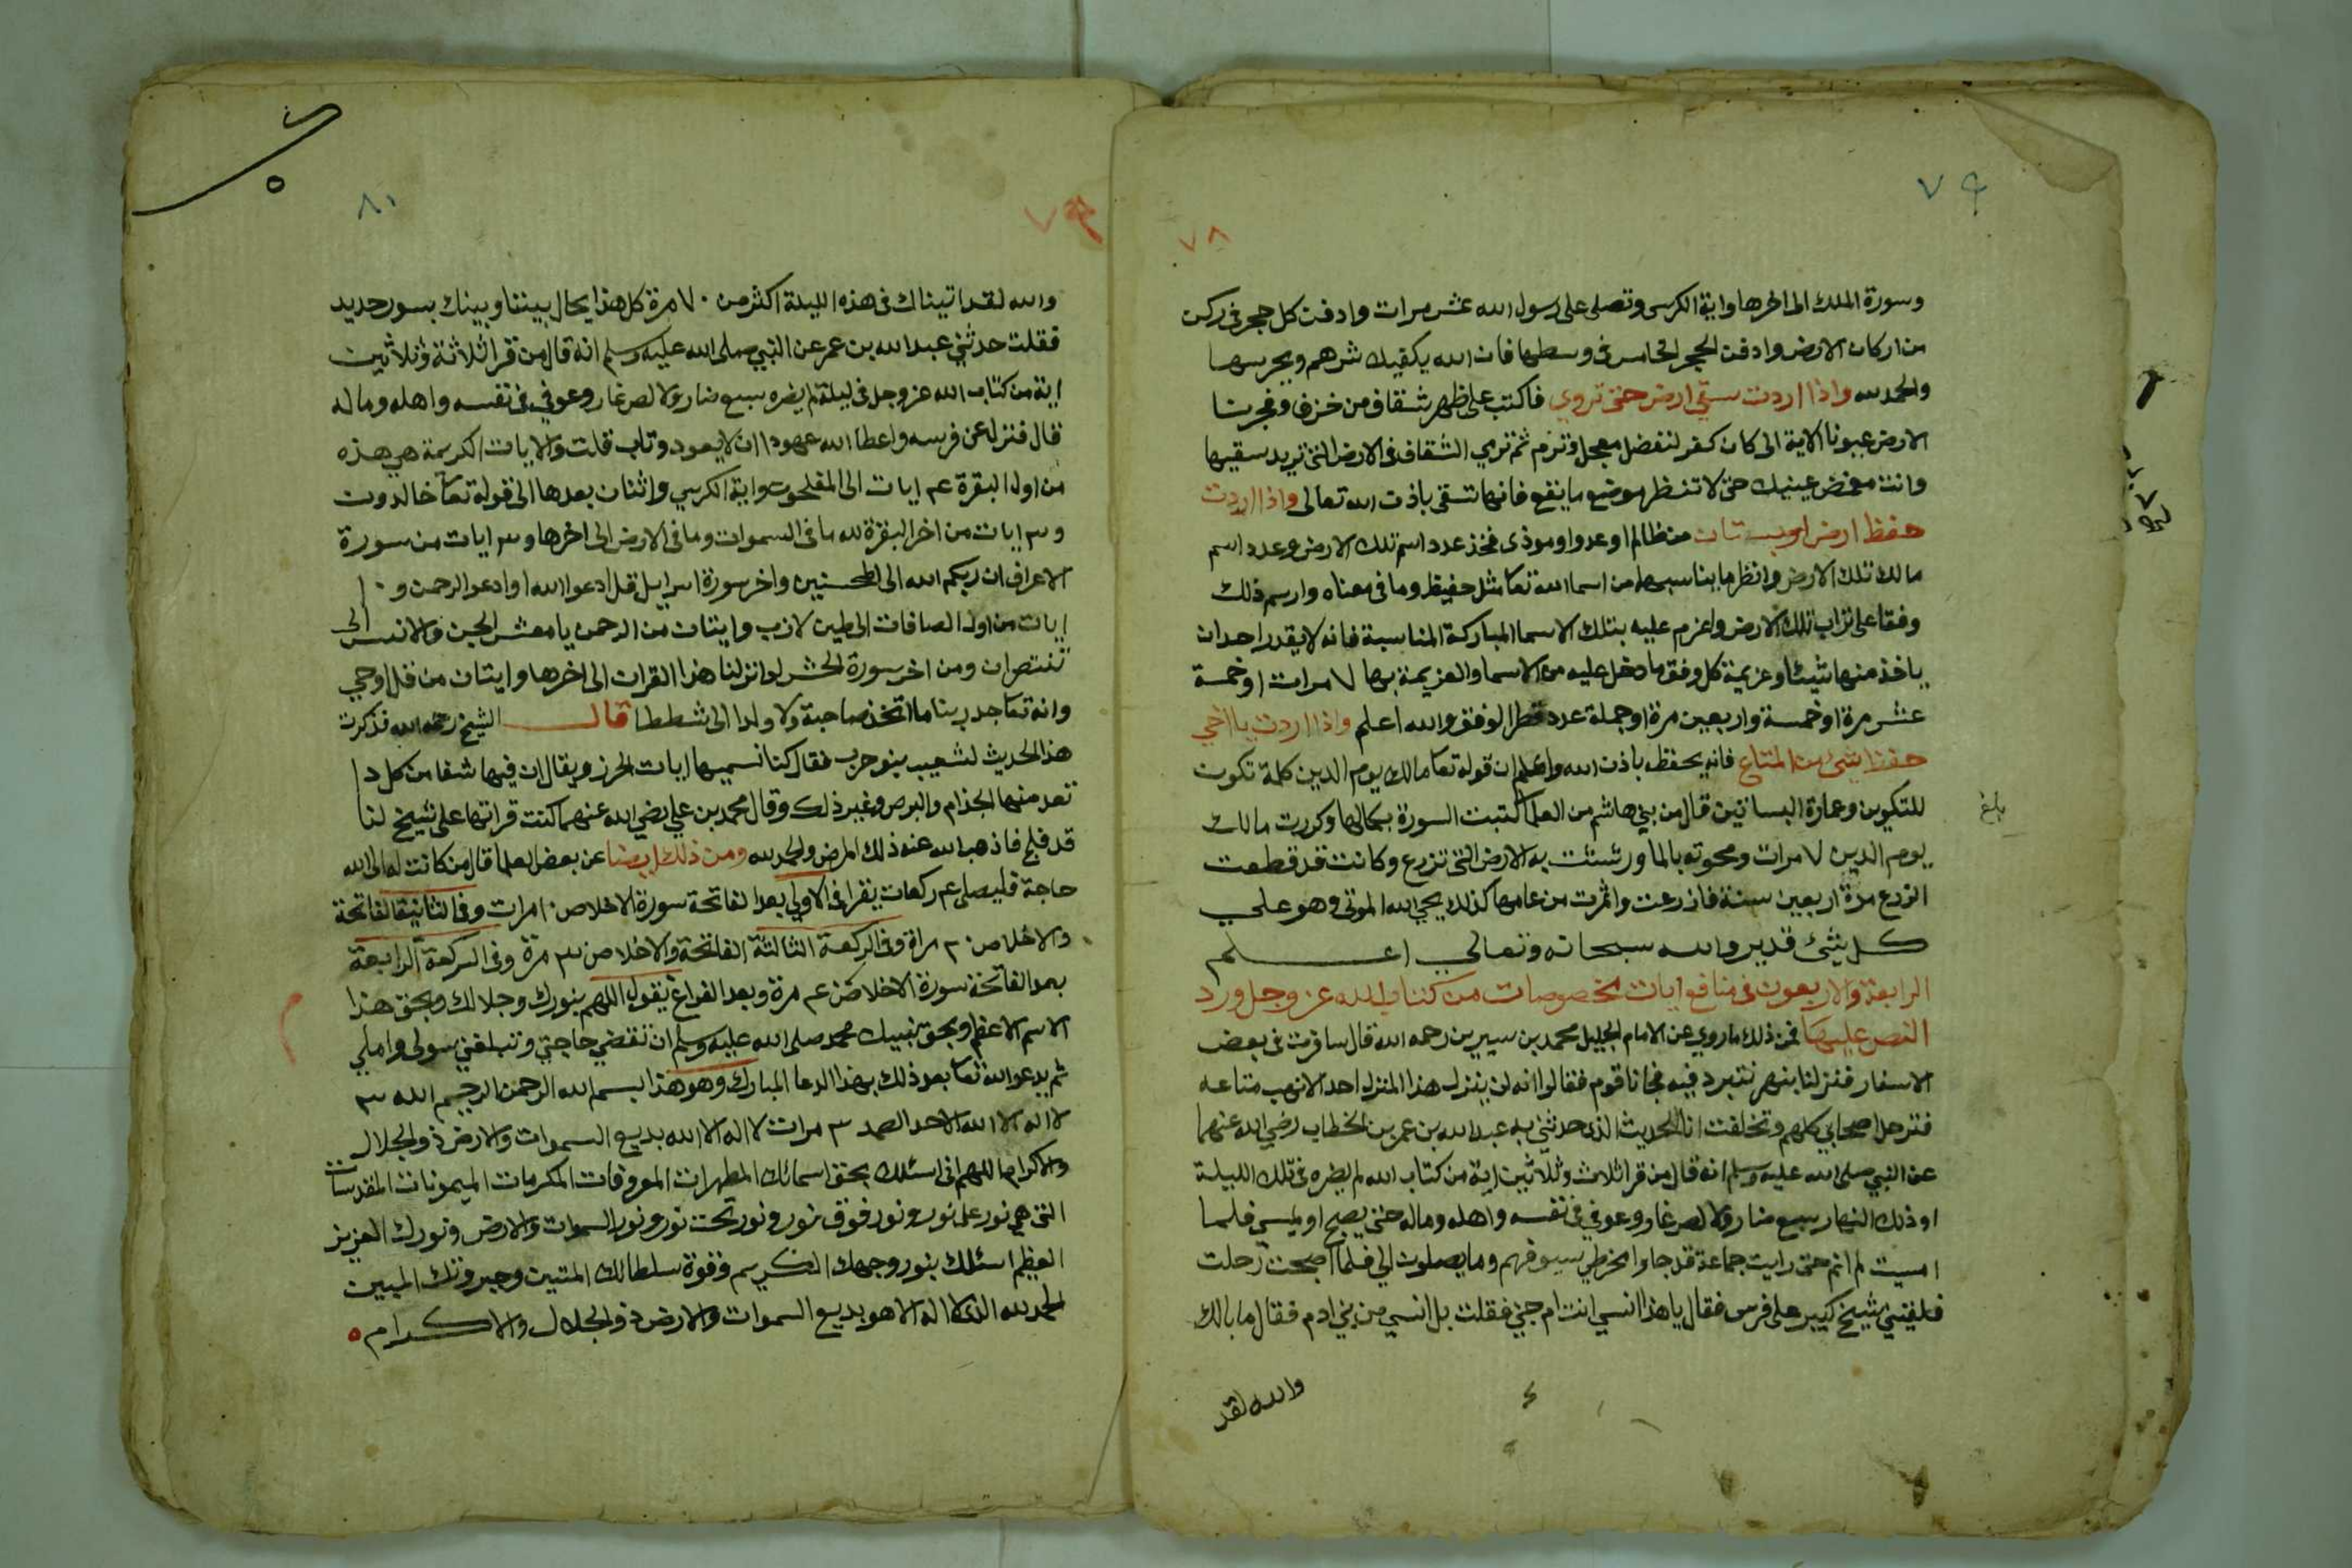 ٧٩
٧٨
وسورة الملك الى اخرها واية الكرسى وتصلى على رسول الله عشر مرات وادفن كل حجر فى ركن
من اركان الارض وادفن الحجر الخامس فى وسطها فان الله يكفيك شرهم ويحرسها
والحمد لله واذا اردت سقي ارض حتى تروي فاكتب على ظهر شقاف من خزف وفجرنا
الارض عيونا الاية الى كان كفر لتفضل معجل وتزم ثم ترمي الشقاف فى الارض التى تريد سقيها
وانت مغمض عينيك حتى لا تنظر موضع ما يقع فانها تسقى باذن الله تعالى واذا اردت
حفظ ارض او بستان من ظالم او عدو او موذى فخذ عدد اسم تلك الارض وعدد اسم
مالك تلك الارض وانظر ما يناسبها من اسما الله تعا مثل حفيظ وما فى معناه وارسم ذلك
وفقا على تراب تلك الارض واعزم عليه بتلك الاسما المباركة المناسبة فانه لا يقدر احد ان
ياخذ منها شيئا وعزيمة كل وفق ما دخل عليه من الاسما والعزيمة بها ٧ مرات او خمسة
عشر مرة او خمسة واربعين مرة او جملة عدد قطر الوفق والله اعلم واذا اردت يا اخي
حفظ شئ من المتاع فانه يحفظ باذن الله واعلم ان قوله تعا مالك يوم الدين كلمة تكون
للتكوين وعمارة البساتين قال من بني هاشم من العلما كتبت السورة بكمالها وكررت مالك
بلغ
يوم الدين ٧ مرات ومحوته بالما ورشيت به الارض التى تزرع وكانت قد قطعت
الزرع مدة اربعين سنة فازرعت واثمرت من عامها كذلك يحي الله الموتى وهو على
كل شئ قدير والله سبحانه وتعالى اعلم
الرابعة والاربعون فى منافع ايات مخصوصات من كتاب الله عز وجل ورد
النص عليها فمن ذلك ما روي عن الامام الجليل محمد بن سيرين رحمه الله قال سافرت فى بعض
الاسفار فنزلنا بنهر نتبرد فيه فجانا قوم فقالوا انه لن ينزل هذا المنزل احد الا نهب متاعه
فترحل اصحابي كلهم وتخلفت انا للحديث الذى حدثني به عبد الله بن عمر بن الخطاب رضي الله عنهما
عن النبي صلى الله عليه وسلم انه قال من قرا ثلاث وثلاثين اية من كتاب الله لم يضره فى تلك الليلة
او ذلك النهار سبع ضار ولا لص غار وعوفي فى نفسه واهله وماله حتى يصبح او يمسي فلما
امسيت لم انم حتى رايت جماعة قد جاوا مخرطي سيوفهم وما يصلون الي فلما اصبحت رحلت
فلقيني شيخ كبير على فرس فقال يا هذا انسي انت ام جني فقلت بل انسي من بني ادم فقال ما بالك
والله لقد
٨١
٧٩
والله لقد اتيناك فى هذه الليلة اكثر من ٧٠ مرة كل هذا يحال بيننا وبينك بسور حديد
فقلت حدثني عبد الله بن عمر عن النبي صلى الله عليه وسلم انه قال من قرا ثلاثة وثلاثين
اية من كتاب الله عز وجل فى ليلة لم يضره سبع ضار ولا لص غار وعوفي فى نفسه واهله وماله
قال فنزل عن فرسه واعطا الله عهودا ان لا يعود وتاب قلت والايات الكريمة هي هذه
من اول البقرة ٤ ايات الى المفلحون واية الكرسي واثنان بعدها الى قوله تعا خالدون
و ٣ ايات من اخر البقرة لله ما فى السموات وما فى الارض الى اخرها و ٣ ايات من سورة
الاعراف ان ربكم الله الى المحسنين واخر سورة اسرايل قل ادعوا الله او ادعوا الرحمن و ١٠
ايات من اول الصافات الى طين لازب وايتان من الرحمن يا معشر الجن والانس الى
تنتصران ومن اخر سورة الحشر لو انزلنا هذا القران الى اخرها وايتان من قل اوحي
وانه تعا جد ربنا ما اتخذ صاحبة ولا ولدا الى شططا قال الشيخ رحمه الله فذكرت
هذا الحديث لشعيب بنو حرب فقال كنا نسميها ايات الحرز ويقال ان فيها شفا من كل دا
تعد منها الجذام والبرص وغير ذلك وقال محمد بن علي رضي الله عنهما كنت قراتها على شيخ لنا
قد فلج فاذهب الله عنه ذلك المرض والحمد لله ومن ذلك ايضا عن بعض العلما قال من كانت له الى الله
حاجة فليصلى ٤ ركعات يقرا فى الاولى بعد الفاتحة سورة الاخلاص ١٠ مرات وفى الثانية الفاتحة
والاخلاص ٢٠ مراة وفى الركعة الثالثة الفاتحة والاخلاص ٣٠ مرة وفى الركعة الرابعة
بعد الفاتحة سورة الاخلاص ٤٠ مرة وبعد الفراغ يقول اللهم بنورك وجلالك وبحق هذا
الاسم الاعظم وبحق نبيك محمد صلى الله عليه وسلم ان تقضي حاجتي وتبلغني سولى واملي
ثم يدعو الله تعا بعد ذلك بهذا الدعا المبارك وهو هذا بسم الله الرحمن الرحيم الله ٣
لا اله الا الله الاحد الصمد ٣ مرات لا اله الا الله بديع السموات والارض ذو الجلال
والاكرام اللهم انى اسئلك بحق اسمائك المطهرات المعروفات المكرمات الميمونات المقدسات
التى هي نور على نور ونور فوق نور ونور تحت نور ونور السموات والارض ونورك العزيز
العظيم اسئلك بنور وجهك الكريم وقوة سلطانك المتين وجبروتك المبين
الحمد لله الذى لا اله الا هو بديع السموات والارض ذو الجلال والاكرام